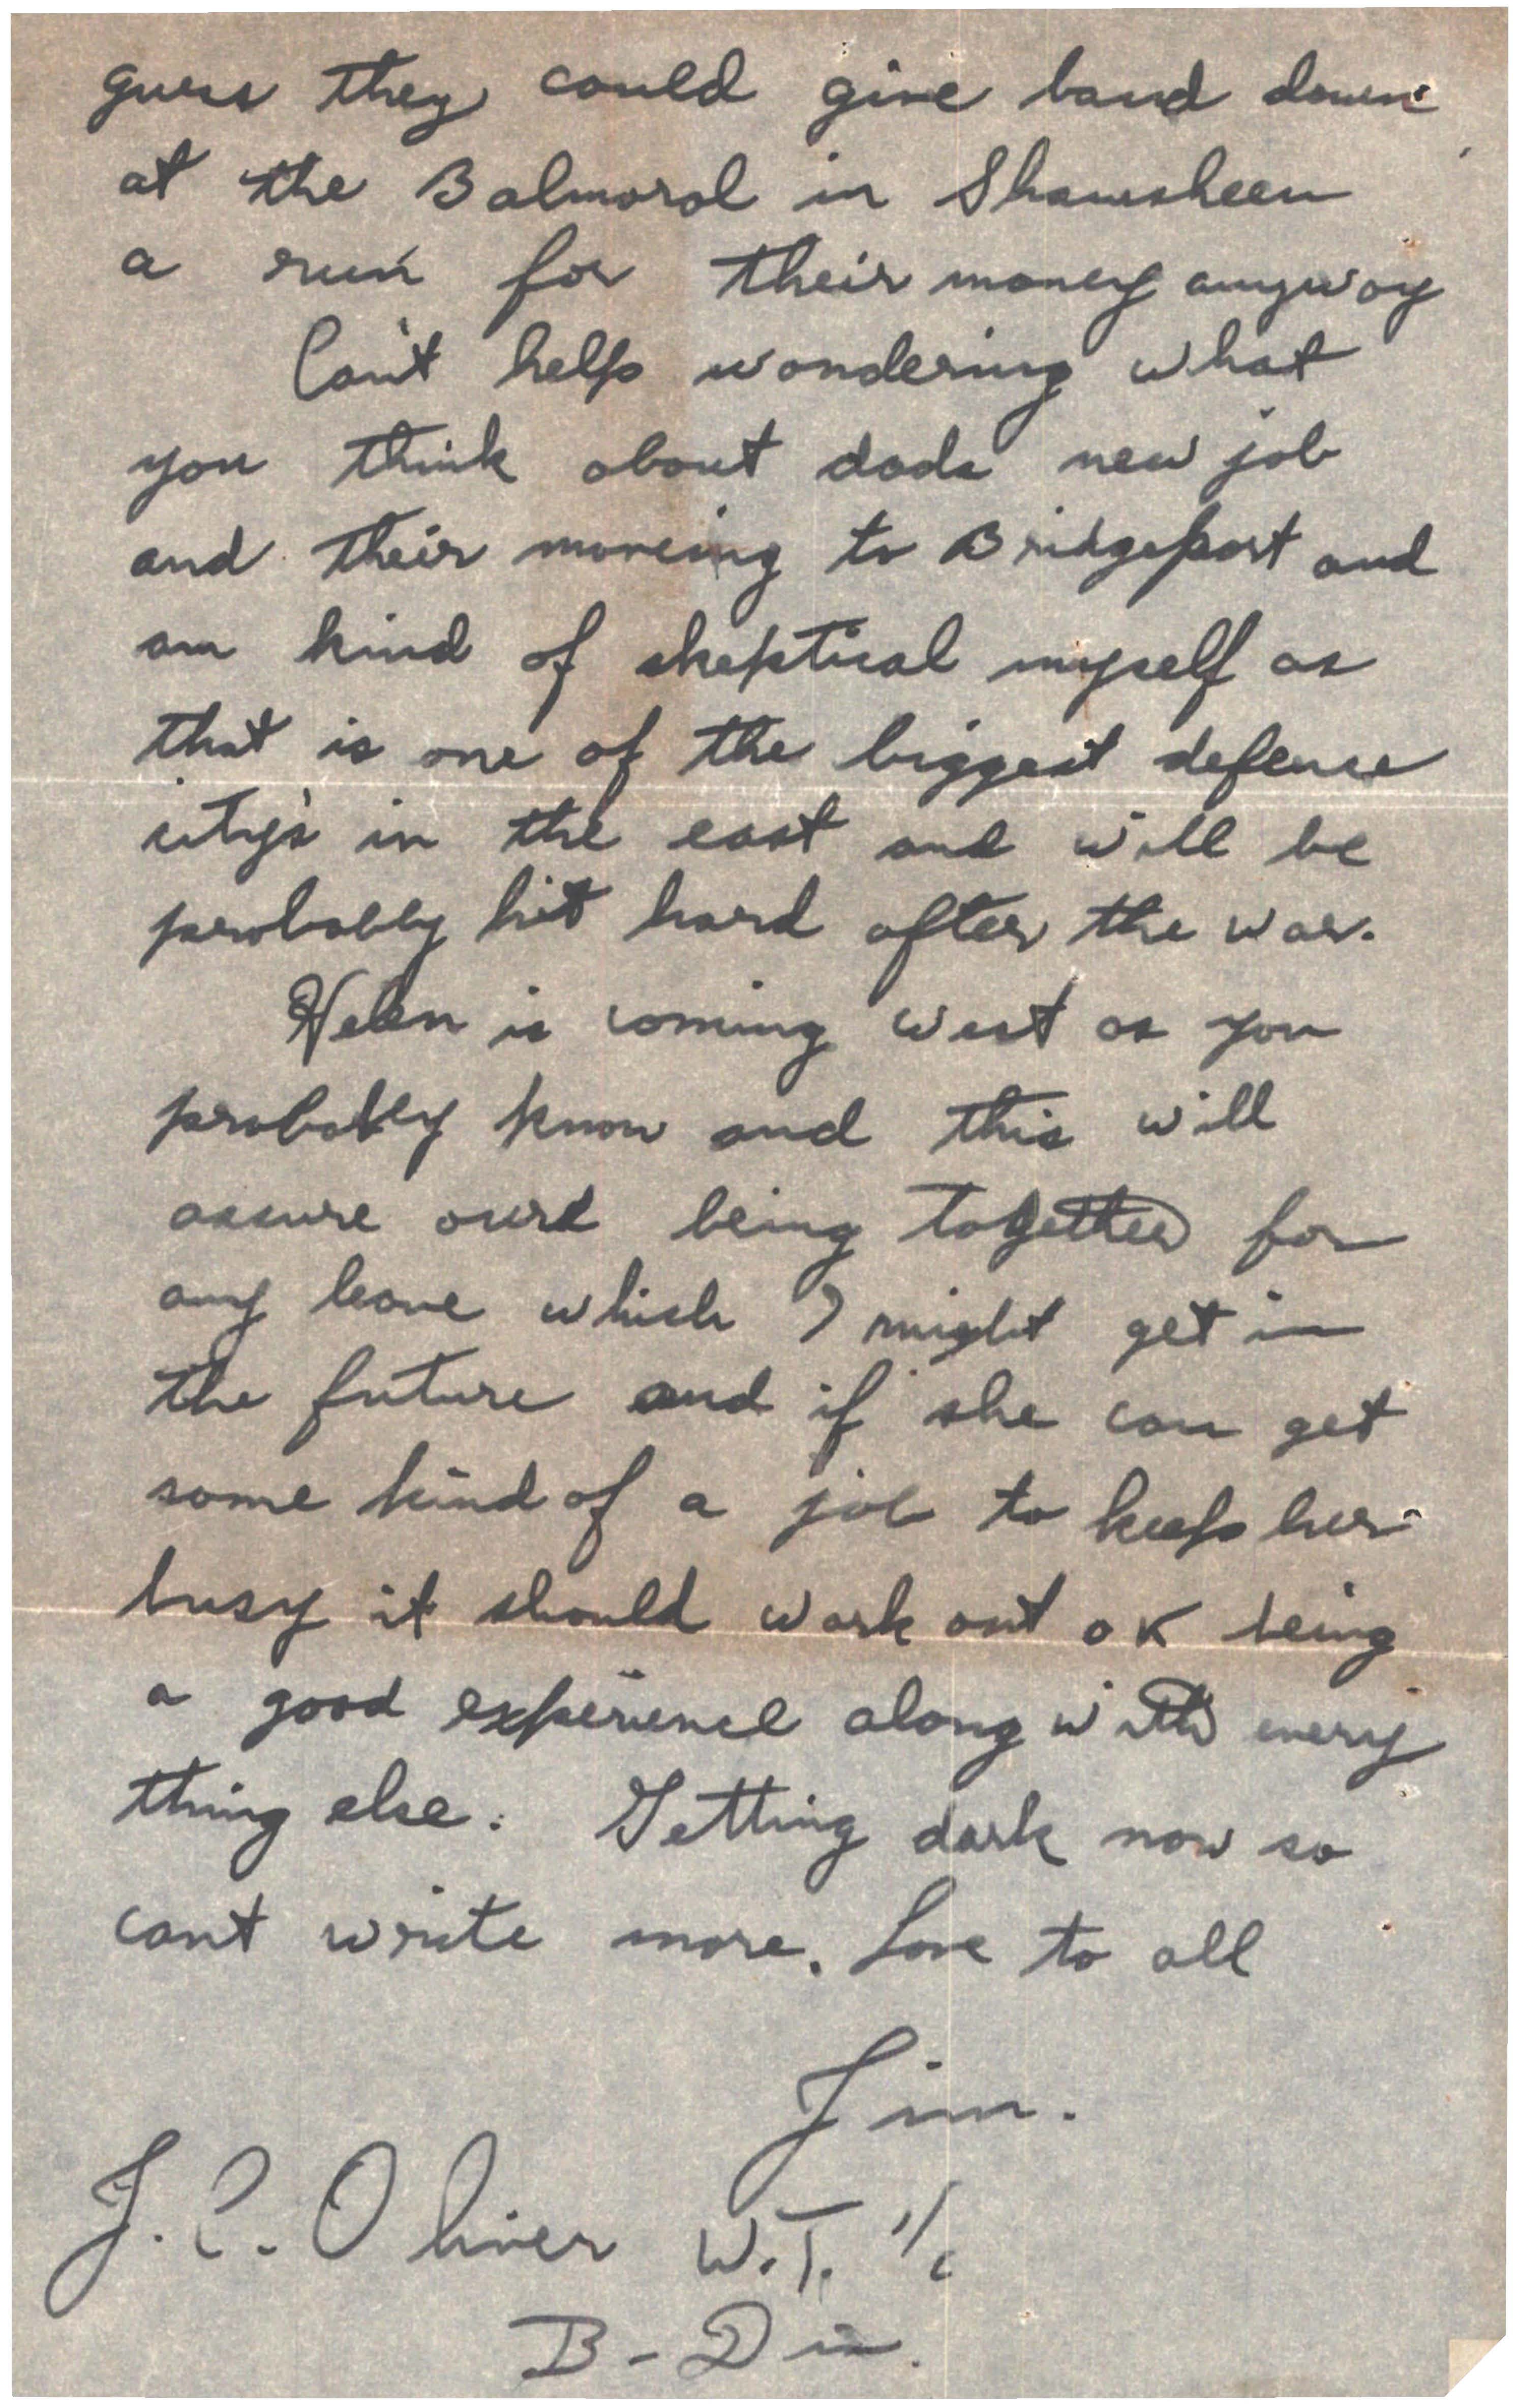 guess they could give band down
at the Balmoral in Shawsheen
a run for their money anyway
Can't help wondering what
you think about dads new job
and their moveing to Bridgeport and
am kind of skeptical myself as
that is one of the biggest defence
city's in the east and will be
probably hit hard after the war.
Helen is coming west as you
probabley know and this will
assure ours being together for
any leave which I might get in
the future and if she can get
some kind of a job to keep her
busy it should work out ok being
a good experience along with every
thing else. Getting dark now so
cant write more. Love to all
Jim.
J. C. Oliver W.T. 1/c
B-Div.